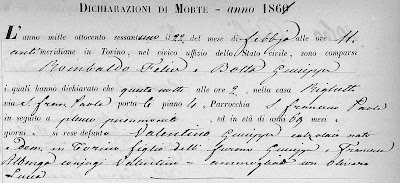 DICHIARAZIONI DI MORTE - anno 1861
L'anno mille ottocento sessantuno il 22 del mese di febbrajo alle ore 11
antimeridiane in Torino, nel civico uffizio dello Stato civile, sono comparsi
Rombaldo Felice e Botto Giuseppe
i quali hanno dichiarato che questa notte alle ore 2, nella casa Righetti
via S. Fran. Paola porta le piano 4, Parrocchia S. Francesco Paola
in seguito a pleuro pneumonia ed in età di anni 69 mesi
giorni si rese defunto Valentino Giuseppe calzolaio nato
e Dom. in Torino figlio delli furono Giuseppe e Francesca
conjugi Valentino - ammogliato con Oliviero
Lucia